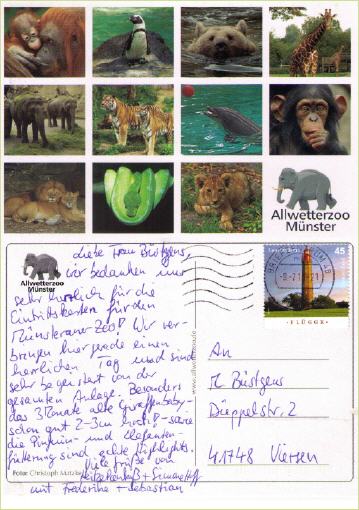 Allwetterzoo
Münster
Allwetterzoo
Münster
Liebe Frau Büstgens,
wir bedanken uns
sehr herzlich für die
Eintrittskarten für den
Münsteraner Zoo! Wir ver-
bringen hier gerade einen
herrlichen Tag und sind
sehr begeistert von der
gesamten Anlage. Besonders
das 3 Monate alte Giraffenbaby-
schon gut 2-3m hoch! - sowie
die Pinguin- und Elefanten-
fütterung sind echte Highlights.
Viele Grüße von
+ Simone
mit Frederike + Sebastian
Foto: Christoph Matzke
www.allwetterzoo.de
45
FLÜGGE
An
Büstgens
Düppelstr. 2
41748 Viersen